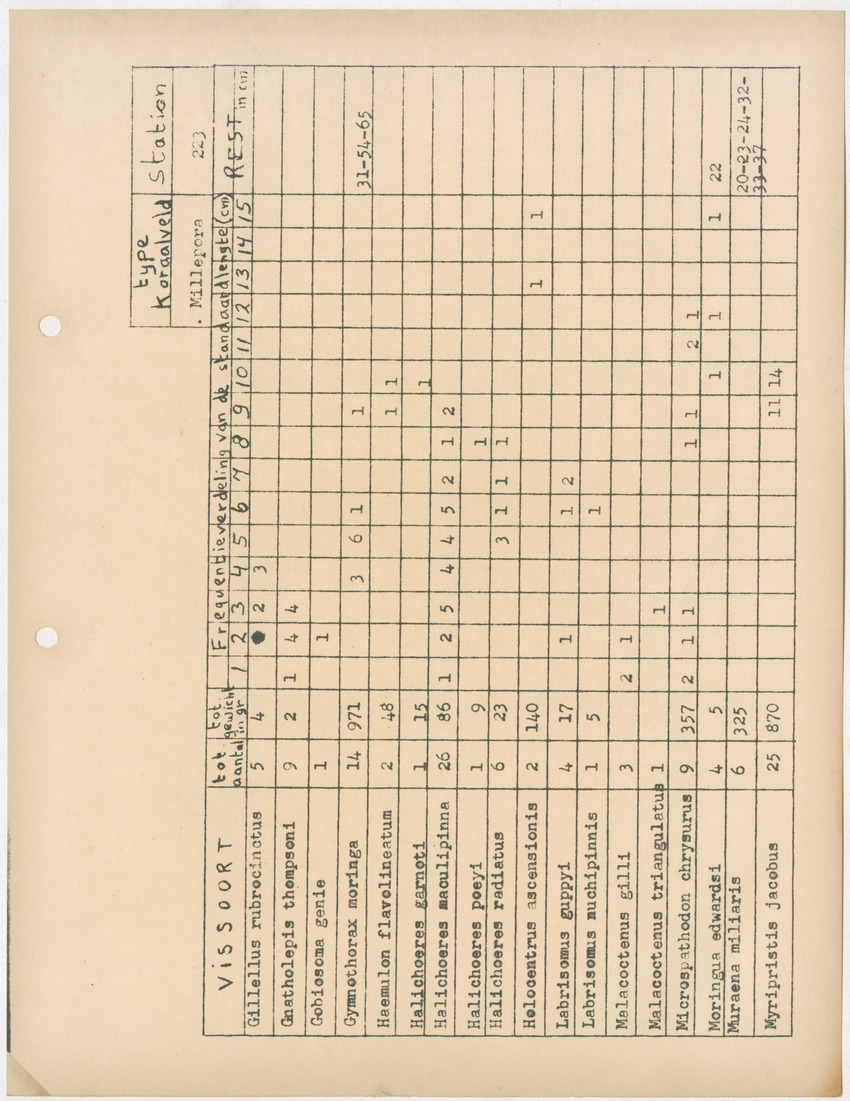 type Koraalveld Station
. Millepora 223
VISSOORT tot aantal tot. gewicht in gr Frequentieverdeling van de standaardlengte (cm) REST in cm
1 2 3 4 5 6 7 8 9 10 11 12 13 14 15
Gillellus rubrocinctus 5 4 2 3
Gnatholepis thompsoni 9 2 1 4 4
Gobiosoma genie 1 1
Gymnothorax moringa 14 971 3 6 1 1 31-54-65
Haemulon flavolineatum 2 48 1 1
Halichoeres garnoti 1 15 1
Halichoeres maculipinna 26 86 1 2 5 4 4 5 2 1 2
Halichoeres poeyi 1 9 1
Halichoeres radiatus 6 23 3 1 1 1
Holocentrus ascensionis 2 140 1 1
Labrisomus guppyi 4 17 1 1 2
Labrisomus nuchipinnis 1 5 1
Malacoctenus gilli 3 2 1
Malacoctenus triangulatus 1 1
Microspathodon chrysurus 9 357 2 1 1 1 1 2 1
Moringua edwardsi 4 5 1 1 1 22
Muraena miliaris 6 325 20-23-24-32-
33-37
Myripristis jacobus 25 870 11 14